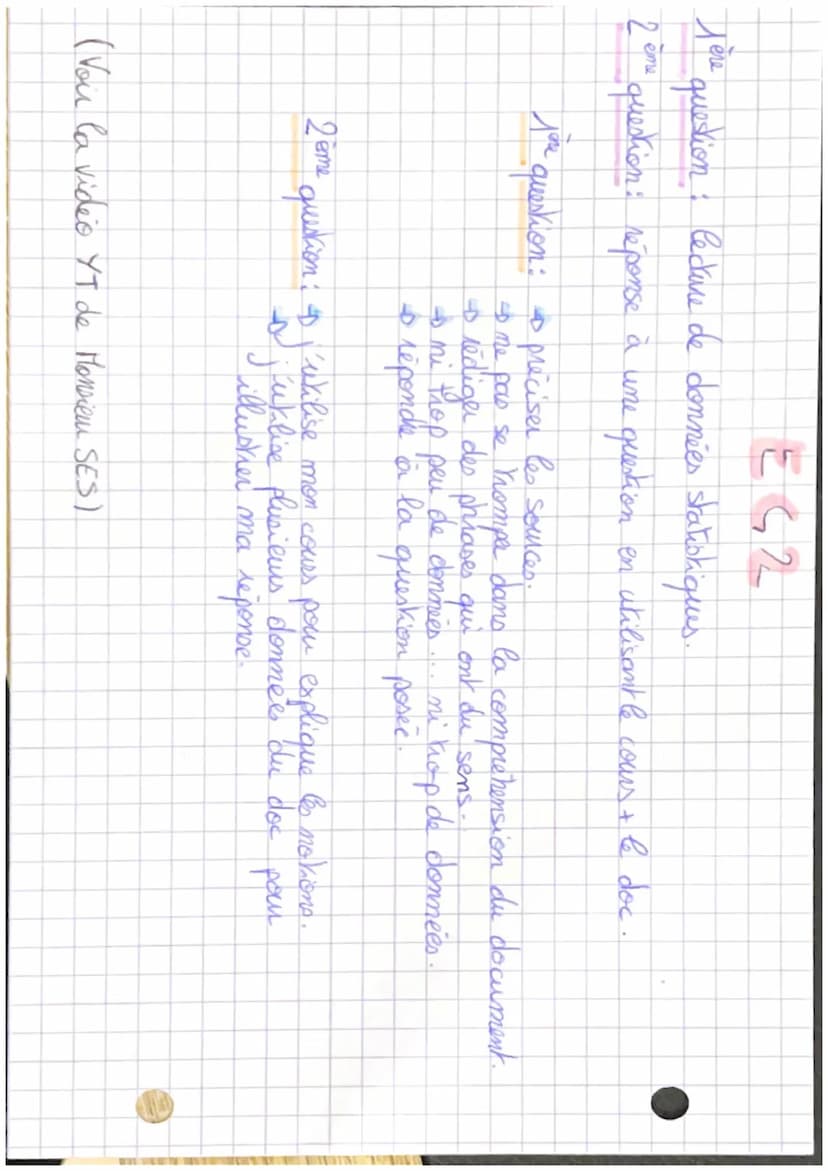 EC2
1ère question : lecture de données statistiques.
2ème question : réponse à une question en utilisant le cours + le doc.
1ère question : → préciser les sources.
→ ne pas se trompe dans la compréhension du document.
→ rédiger des phrases qui ont du sens.
→ ni trop peu de données... ni trop de données.
→ répondre à la question posée.
2ème question : → j'utilise mon cours pour explique les notions.
→ j'utilise plusieurs données du doc pour
illustrer ma réponse.
(Voir la vidéo YT de Monsieur SES)